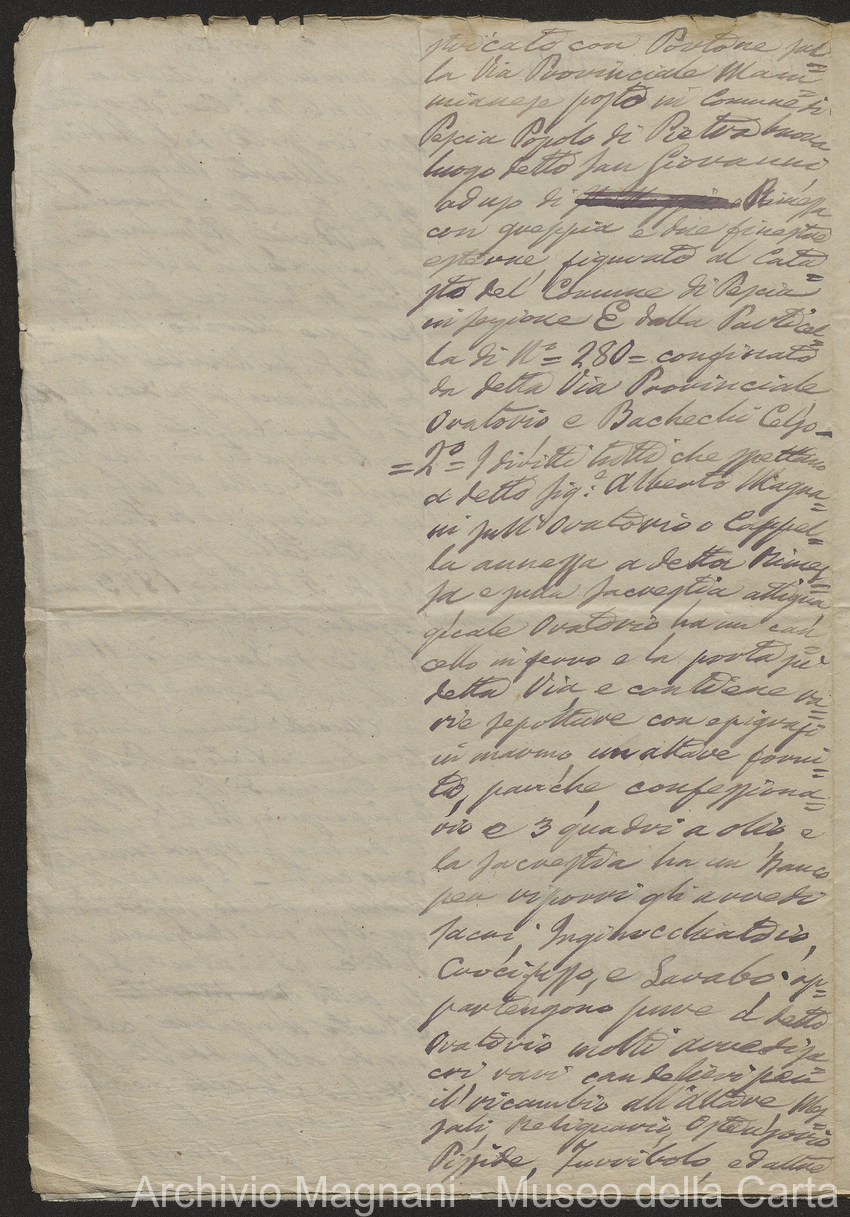 stricato con Portone sul=
la Via Provinciale Mam=
mianese posto in Comune di
Pescia Popolo di Pietrabuona
luogo detto San Giovanni
ad uso di Rimessa
con greppia e due finestre
esterne figurato al Cata=
sto del Comune di Pescia
in sezione E dalla Particel=
la di N.º = 280 = confinato
da detta Via Provinciale
Oratorio e Bachechi Celso -
= 2º = I diritti tutti che spettano
a detto Sig.e Alberto Magna=
ni sull'Oratorio o Cappel=
la annessa a detta Rimes=
sa e sulla Sacrestia attigua
quale Oratorio ha un can=
cello in ferro e la porta su
detta Via, e contiene va=
rie sepolture con epigrafi
in marmo, un altare forni=
to, panche confessiona=
rio e 3 quadri a olio e
la Sacrestia ha un banco
per riporvi gli arredi
sacri, Inginocchiatoio,
Crocifisso, e Lavabo. ap=
partengono pure a detto
Oratorio molti arredi sa=
cri vari candelieri per
il ricambio all'altare Mes=
sali Reliquario, Ostensorio
Pisside, Turribolo, ed altre
Archivio Magnani - Museo della Carta